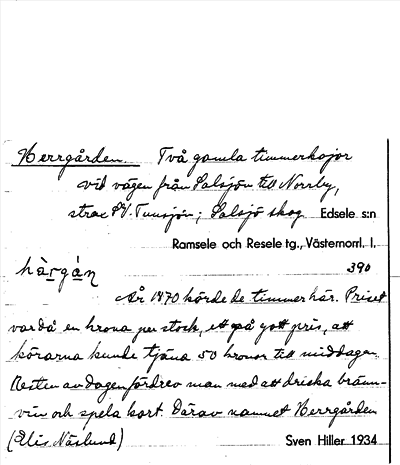 Herrgården. Två gamla timmerkojor
vid vägen från Salsjön till Norrby,
strax SV. Tunsjön; Salsjö skog Edsele s:n
Ramsele och Resele tg., Västernorrl. l.
hàrgán 390
År 1870 körde de timmer här. Priset
var då en krona per stock, ett på gott pris, att
körarna kunde tjäna 50 kronor till middagen.
Resten av dagen fördrev man med att dricka bränn-
vin och spela kort. Därav namnet Herrgården
(Elis Näslund) Sven Hiller 1934